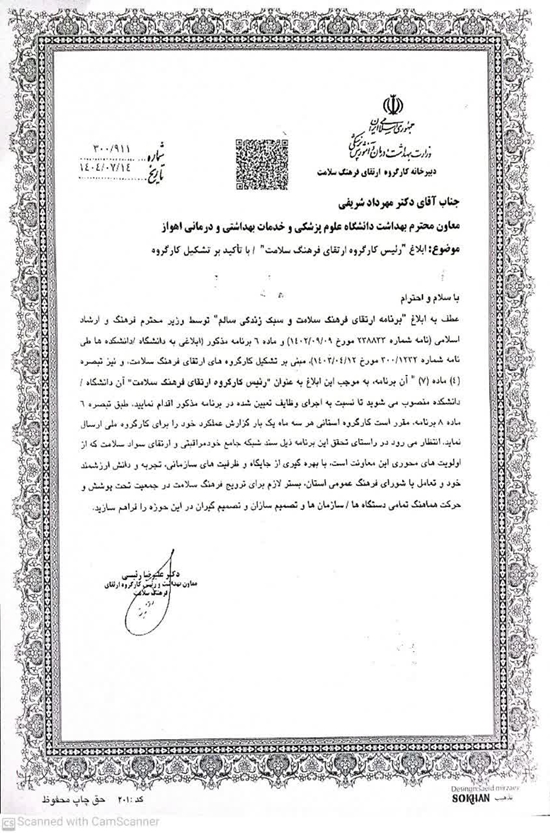 جمهوری اسلامی ایران
وزارت بهداشت، درمان و آموزش پزشکی
دبیرخانه کارگروه ارتقای فرهنگ سلامت
شماره ۳۰۰/۹۱۱
تاریخ ۱۴۰۴/۰۷/۱۴
جناب آقای دکتر مهرداد شریفی
معاون محترم بهداشت دانشگاه علوم پزشکی و خدمات بهداشتی و درمانی اهواز
موضوع: ابلاغ "رئیس کارگروه ارتقای فرهنگ سلامت" / با تأکید بر تشکیل کارگروه
با سلام و احترام
عطف به ابلاغ "برنامه ارتقای فرهنگ سلامت و سبک زندگی سالم" توسط وزیر محترم فرهنگ و ارشاد
اسلامی (نامه شماره ۲۳۸۸۳۳ مورخ ۱۴۰۲/۰۹/۰۹) و ماده ۶ برنامه مذکور (ابلاغی به دانشگاه /دانشکده ها طی
نامه شماره ۳۰۰/۱۲۳۲ مورخ ۱۴۰۳/۰۴/۱۲)، مبنی بر تشکیل کارگروه های ارتقای فرهنگ سلامت، و نیز تبصره
(۴) ماده (۷) " آن برنامه، به موجب این ابلاغ به عنوان "رئیس کارگروه ارتقای فرهنگ سلامت" آن دانشگاه /
دانشکده منصوب می شوید تا نسبت به اجرای وظایف تعیین شده در برنامه مذکور اقدام نمایید. طبق تبصره ۶
ماده ۸ برنامه، مقرر است کارگروه استانی هر سه ماه یک بار گزارش عملکرد خود را برای کارگروه ملی ارسال
نماید. انتظار می رود در راستای تحقق این برنامه ذیل سند شبکه جامع خودمراقبتی و ارتقای سواد سلامت که از
اولویت های محوری این معاونت است، با بهره گیری از جایگاه و ظرفیت های سازمانی، تجربه و دانش ارزشمند
خود و تعامل با شورای فرهنگ عمومی استان، بستر لازم برای ترویج فرهنگ سلامت در جمعیت تحت پوشش و
حرکت هماهنگ تمامی دستگاه ها / سازمان ها و تصمیم سازان و تصمیم گیران در این حوزه را فراهم سازید.
دکتر علیرضا رئیسی
معاون بهداشت و رئیس کارگروه ارتقای
فرهنگ سلامت
کد: ۲۰۱ حق چاپ محفوظ
تذهیب SOKHAN
CS Scanned with CamScanner